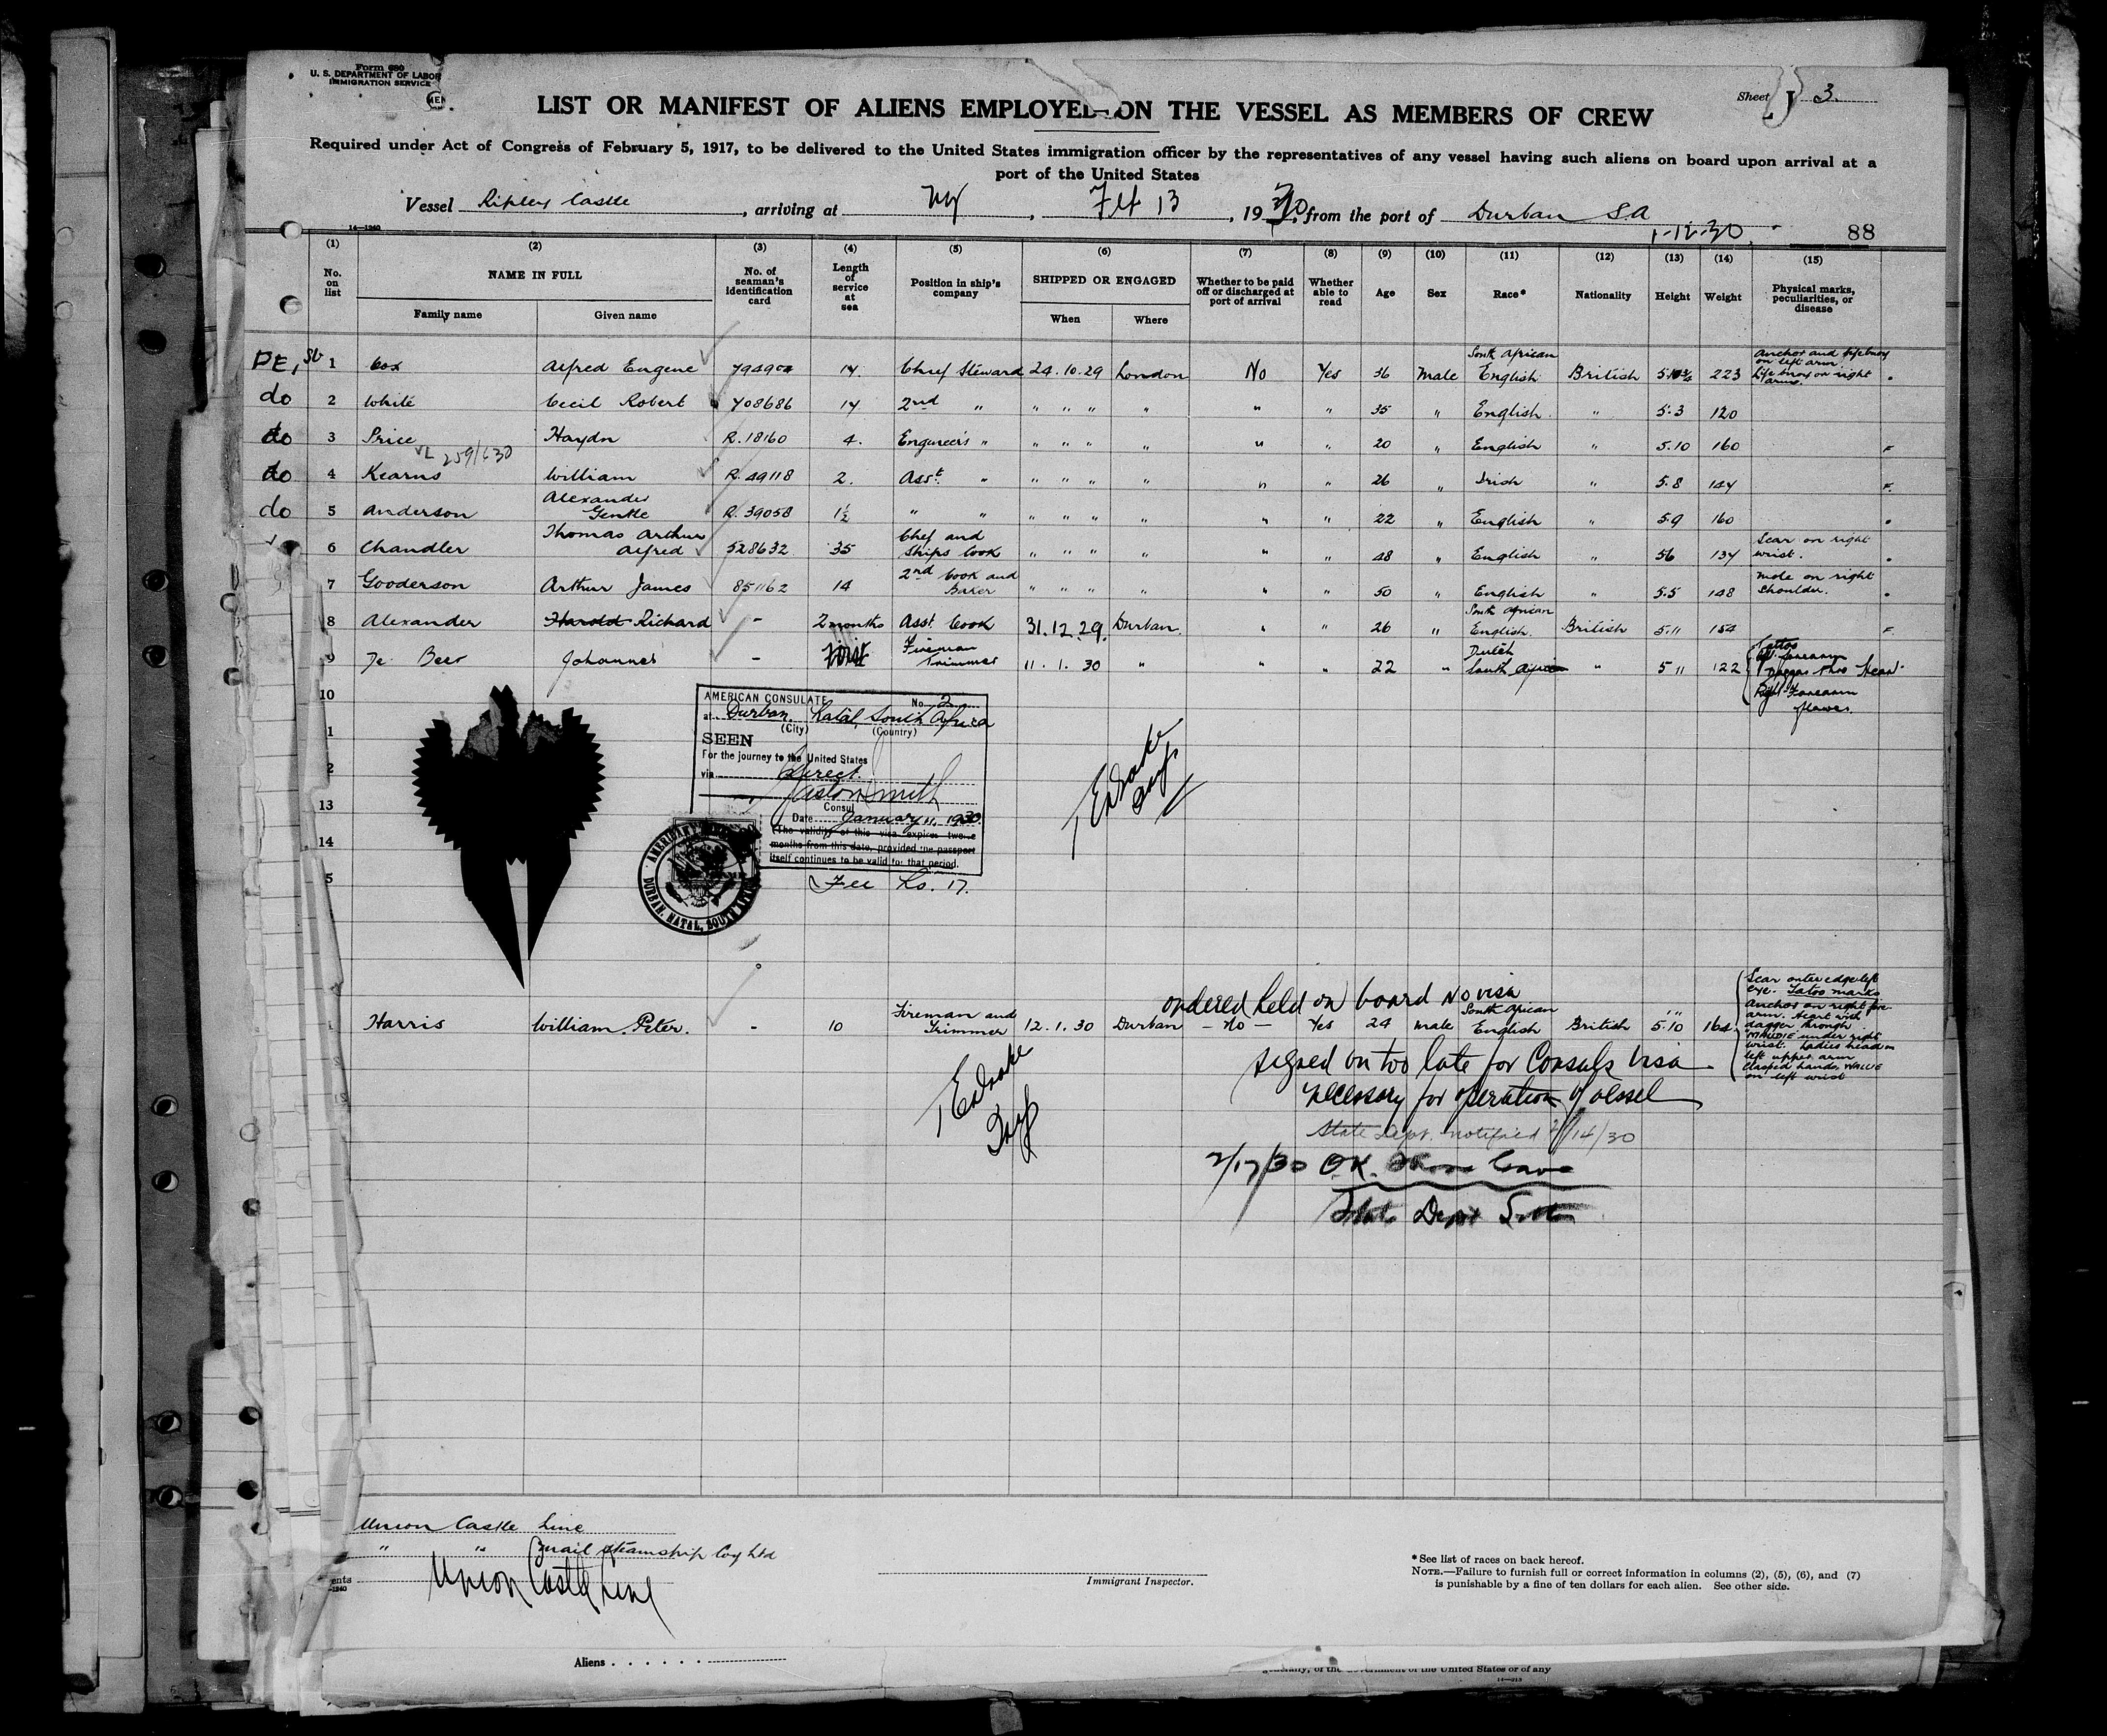 Form 680
U. S. DEPARTMENT OF LABOR
IMMIGRATION SERVICE
Sheet 3.
LIST OR MANIFEST OF ALIENS EMPLOYED ON THE VESSEL AS MEMBERS OF CREW
Required under Act of Congress of February 5, 1917, to be delivered to the United States immigration officer by the representatives of any vessel having such aliens on board upon arrival at a
port of the United States
Vessel Ripley Castle, arriving at NY, Feb 13, 1930, from the port of Durban S.A
1-12-30.
88
14—1240
(1) (2) (3) (4) (5) (6) (7) (8) (9) (10) (11) (12) (13) (14) (15)
No. on list
NAME IN FULL
Family name
Given name
No. of seaman's identification card
Length of service at sea
Position in ship's company
SHIPPED OR ENGAGED
When
Where
Whether to be paid off or discharged at port of arrival
Whether able to read
Age
Sex
Race*
Nationality
Height
Weight
Physical marks, peculiarities, or disease
1 Cox Alfred Eugene 14 Chief Steward 24.10.29 London No Yes 36 Male South African English British 223 Anchor and lifebuoy on left arm. Lifebuoy on right arm.
do 2 White Cecil Robert 708686 14 2nd " " " " " " " 35 " English " 5.3 120
do 3 Price Haydn R.18160 4. Engineers " " " " " " " 20 " English " 5.10 160 F
do 4 Kearns William R.49118 2. Asst. " " " " " " " 26 " Irish " 5.8 144 F.
do 5 Anderson Alexander Gentle R.39058 1½ " " " " " " " " 22 " English " 5.9 160
6 Chandler Thomas Arthur Alfred 528632 35 Chef and Ships Cook " " " " " " 48 " English " 56 134 Scar on right wrist.
7 Gooderson Arthur James 851162 14 2nd Cook and Baker " " " " " " 50 " English " 5.5 148 Mole on right shoulder.
8 Alexander Harold Richard - 2 months Asst. Cook 31.12.29. Durban. " " 26 " South African English. British 5.11 154 F
9 De Beer Johannes - First Fireman Trimmer 11.1.30 " " " 22 " Dutch South African " 5 11 122 Tattoo left forearm Dagger thro Heart Right Forearm flower.
10
1
2
13
14
5
AMERICAN CONSULATE No. 2
at Durban, Natal, South Africa
(City) (Country)
SEEN
For the journey to the United States
via Direct
Consul
Date January 11, 1930
(The validity of this visa expires twelve
months from this date, provided the passport
itself continues to be valid for that period.
Fee No. 17.
DURBAN, NATAL, SOUTH AFRICA
ordered held on board No visa
Harris William Peter. - 10 Fireman and Trimmer 12.1.30 Durban - No - Yes 24 Male South African English British 5.10 164 Scar outer edge left eye. Tatoo marks Anchor on right fore arm. Heart with dagger through MAUDIE under right wrist. Ladies head on left upper arm Clasped hands, on left wrist
signed on too late for Consuls Visa
necessary for operation of vessel
State Dept. notified 2/14/30
2/17/30 O.K. Shore Leave
State Dept
Union Castle Line
" " mail steamship Coy Ltd
Union Castle Line
Immigrant Inspector.
*See list of races on back hereof.
NOTE.—Failure to furnish full or correct information in columns (2), (5), (6), and (7)
is punishable by a fine of ten dollars for each alien. See other side.
Aliens
of the United States or of any